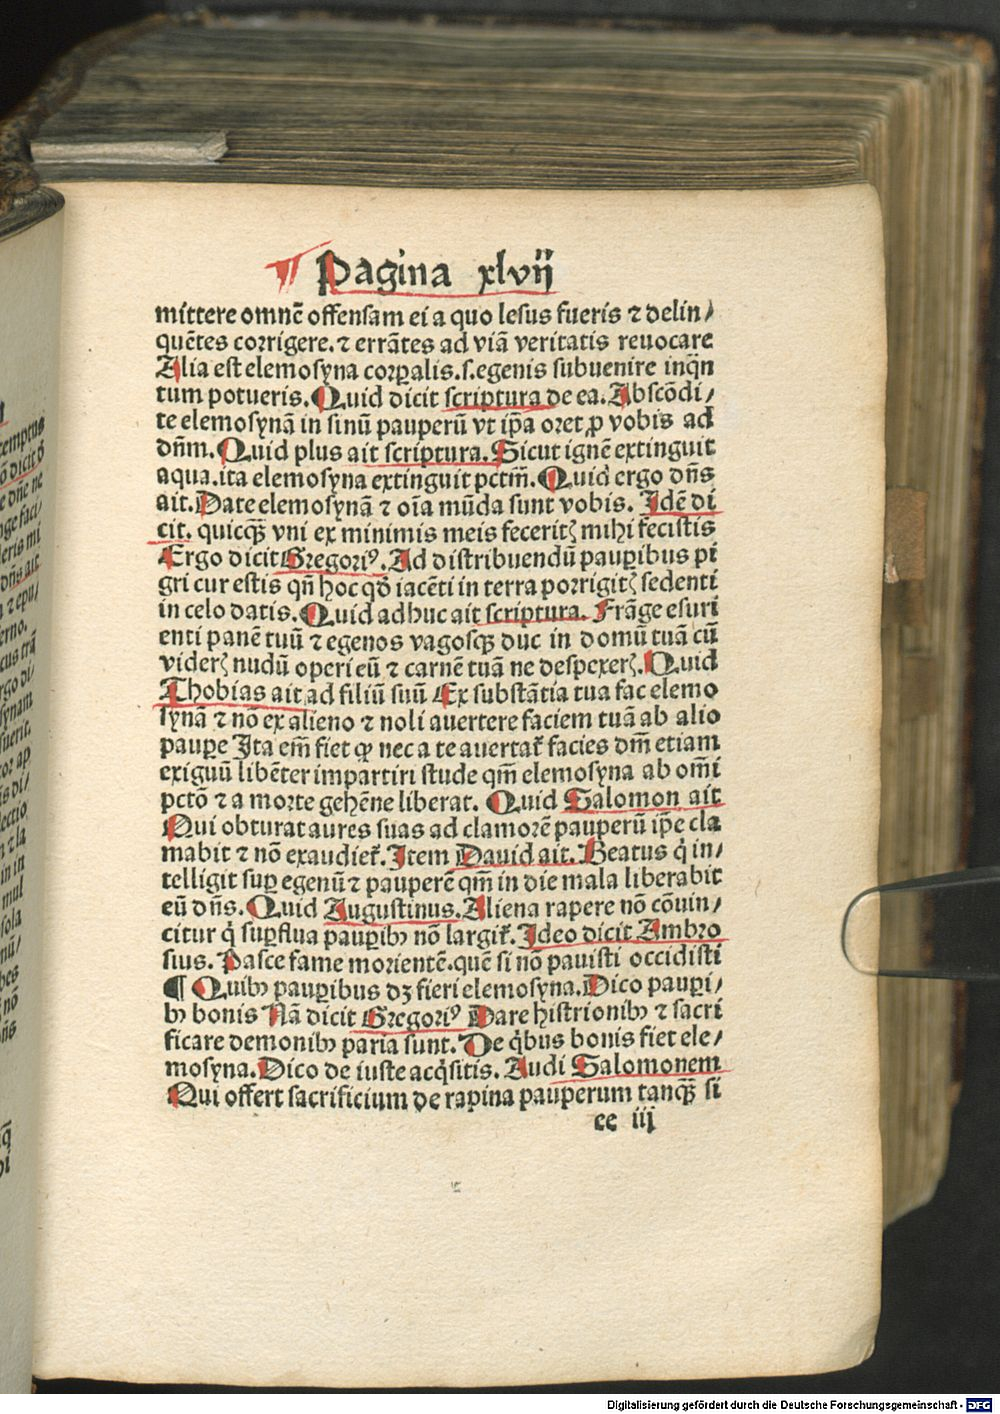 ¶ Pagina xlvij
mittere omnē offensam ei a quo lesus fueris ⁊ delin/
quētes corrigere. ⁊ errātes ad viā veritatis reuocare
Alia est elemosyna corꝑalis .s. egenis subuenire inqn̄
tum potueris. Quid dicit scriptura de ea. Abscōdi/
te elemosynā in sinū pauperū vt ip̄a oret ꝓ vobis ad
dn̄m. Quid plus ait scriptura. Sicut ignē extinguit
aqua. ita elemosyna extinguit pctm̄. Quid ergo dn̄s
ait. Date elemosynā ⁊ oīa mūda sunt vobis. Idē di
cit. quicqꝫ vni ex minimis meis feceritꝭ mihi fecistis
Ergo dicit Gregoriꝰ. Ad distribuendū pauꝑibus pi
gri cur estis qn̄ hoc qđ iacēti in terra porrigitꝭ sedenti
in celo datis. Quid adhuc ait scriptura. Frāge esuri
enti panē tuū ⁊ egenos vagosqꝫ duc in domū tuā cū
viderꝭ nudū operi eū ⁊ carnē tuā ne despexerꝭ. Quid
Thobias ait ad filiū suū Ex substātia tua fac elemo
synā ⁊ nō ex alieno ⁊ noli auertere faciem tuā ab alio
pauꝑe Ita em̄ fiet ꝙ nec a te auertat̄ facies dm̄ etiam
exiguū libēter impartiri stude qm̄ elemosyna ab om̄i
pctō ⁊ a morte gehēne liberat. Quid Salomon ait
Qui obturat aures suas ad clamorē pauperū ip̄e cla
mabit ⁊ nō exaudiet̄. Item Dauid ait. Beatus q̇ in/
telligit suꝑ egenū ⁊ pauperē qm̄ in die mala liberabit
eū dn̄s. Quid Augustinus. Aliena rapere nō cōuin/
citur q̇ suꝑflua pauꝑibꝫ nō largit̄. Ideo dicit Ambro
sius. Pasce fame morientē. quē si nō pauisti occidisti
¶ Quibꝫ pauꝑibus dꝫ fieri elemosyna. Dico pauꝑi/
bꝫ bonis Nā dicit Gregoriꝰ Dare histrionibꝫ ⁊ sacri
ficare demonibꝫ paria sunt. De q̇bus bonis fiet ele/
mosyna. Dico de iuste acq̇sitis. Audi Salomonem
Qui offert sacrificium de rapina pauperum tanqꝫ si
ee iij
Digitalisierung gefördert durch die Deutsche Forschungsgemeinschaft - DFG